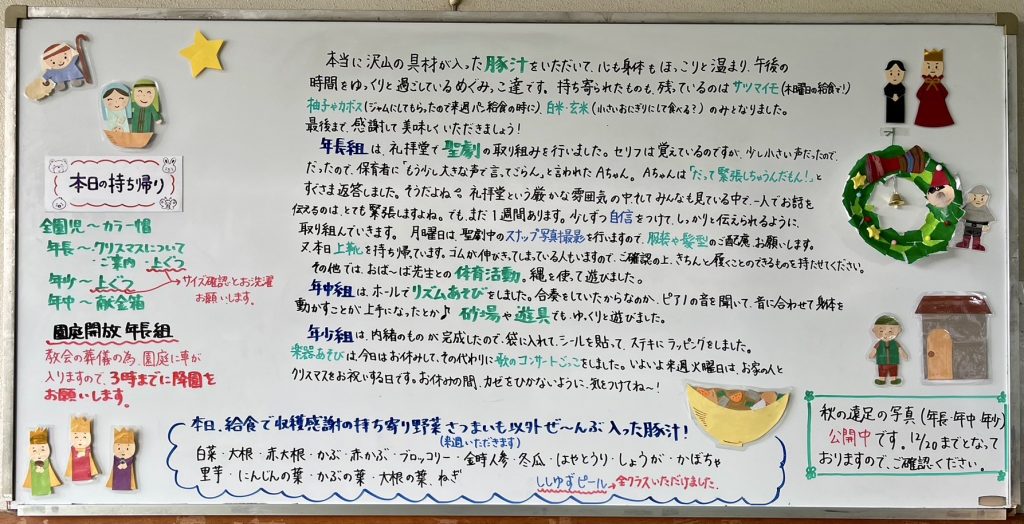 本当に沢山の具材が入った豚汁をいただいて、心も身体もほっこりと温まり、午後の
時間をゆっくりと過ごしているめぐみっこ達です。持ち寄られたものも、残っているのはサツマイモ(木曜日の給食で!)
柚子やカボス(ジャムにしてもらったので来週パン給食の時に)、白米・玄米(小さいおにぎりにして食べる?)のみとなりました。
最後まで、感謝して美味しくいただきましょう!
年長組は、礼拝堂で聖劇の取り組みを行いました。セリフは覚えているのですが、少し小さい声だったので、
だったので、保育者に「もう少し大きな声で言ってごらん」と言われたAちゃん。Aちゃんは「だって緊張しちゃうんだもん!」と
すぐさま返答しました。そうだよね。礼拝堂という厳かな雰囲気の中でしてみんなも見ている中で、一人でお話を
伝えるのは、とても緊張しますよね。でも、まだ1週間あります。少しずつ自信をつけて、しっかりと伝えられるように
取り組んでいきます。月曜日は、聖劇中のスナップ写真撮影を行いますので、服装や髪型のご配慮、お願いします。
又、本日上靴を持ち帰ています。ゴムが伸びきってしまっている人もいますので、ご確認の上、きちんと履くことのできるものを持たせてください。
その他では、おばーば先生との体育活動。縄を使って遊びました。
年中組は、ホールでリズムあそびをしました。合奏をしていたからなのか、ピアノの音を聞いて、音に合わせて身体を
動かすことが上手になったとか♪砂場や遊具でも、ゆっくりと遊びました。
年少組は、内緒のものが完成したので、袋に入れて、シールを貼って、ステキにラッピングをしました。
楽器あそびは、今日はお休みして、その代わりに歌のコンサートごっこをしました。いよいよ来週火曜日は、お家の人と
クリスマスをお祝いする日です。お休みの間、カゼをひかないように、気をつけてね〜!
本日の持ち帰り
全園児〜カラー帽
年長〜クリスマスについて
・ご案内・上ぐつ
年少〜上ぐつ
サイズ確認とお洗濯
お願いします。
年中〜献金箱
園庭開放 年長組
教会の葬儀の為、園庭に車が
入りますので、3時までに降園を
お願いします。
本日、給食で収穫感謝の持ち寄り野菜 さつまいも以外ぜ〜んぶ入った豚汁!
(来週いただきます)
白菜・大根・赤大根・かぶ・赤かぶ・ブロッコリー・金時人参・冬瓜・はやとうり・しょうが・かぼちゃ
里芋・にんじんの葉・かぶの葉・大根の葉、ねぎ
ししゆずピール→全クラスいただけました。
秋の遠足の写真(年長・年中・年少)
公開中です。12/20までとなって
おりますので、ご確認ください。